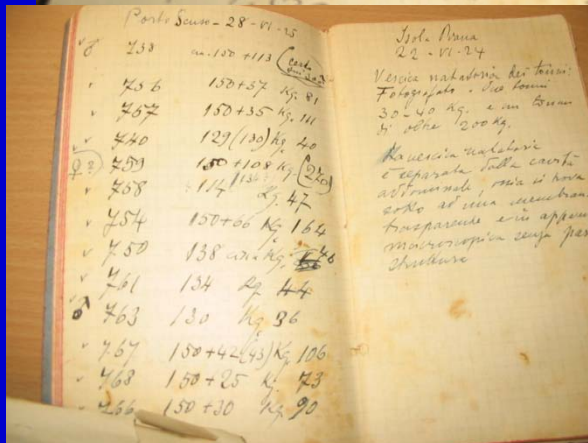 Porto Scuso - 28 - VI - 25
♂ 738 m. 150 + 113 (certo
v 756 150 + 57 Kg. 81
v 767 150 + 35 Kg. 111
v 740 129 (130) Kg 40
759 150 + 108 Kg. (270)
v 768 114 Kg. 47
v 754 150 + 66 Kg 164
v 750 138 Kg. 76
v 761 134 Kg 44
♂ 763 130 Kg 36
v 767 150 + 42 (43) Kg. 106
v 768 150 + 25 Kg 73
v 766 150 + 30 Kg 90
Isola Piana
22 - VI - 24
Vescica natatoria dei tonni:
Fotografato. Due tonni
30 - 40 Kg. e un tonno
di oltre 200 Kg.
La vescica natatoria
è separata dalla cavità
addominale, ossia si trova
sotto ad una membrana
trasparente e in appar
macroscopica senza
struttura